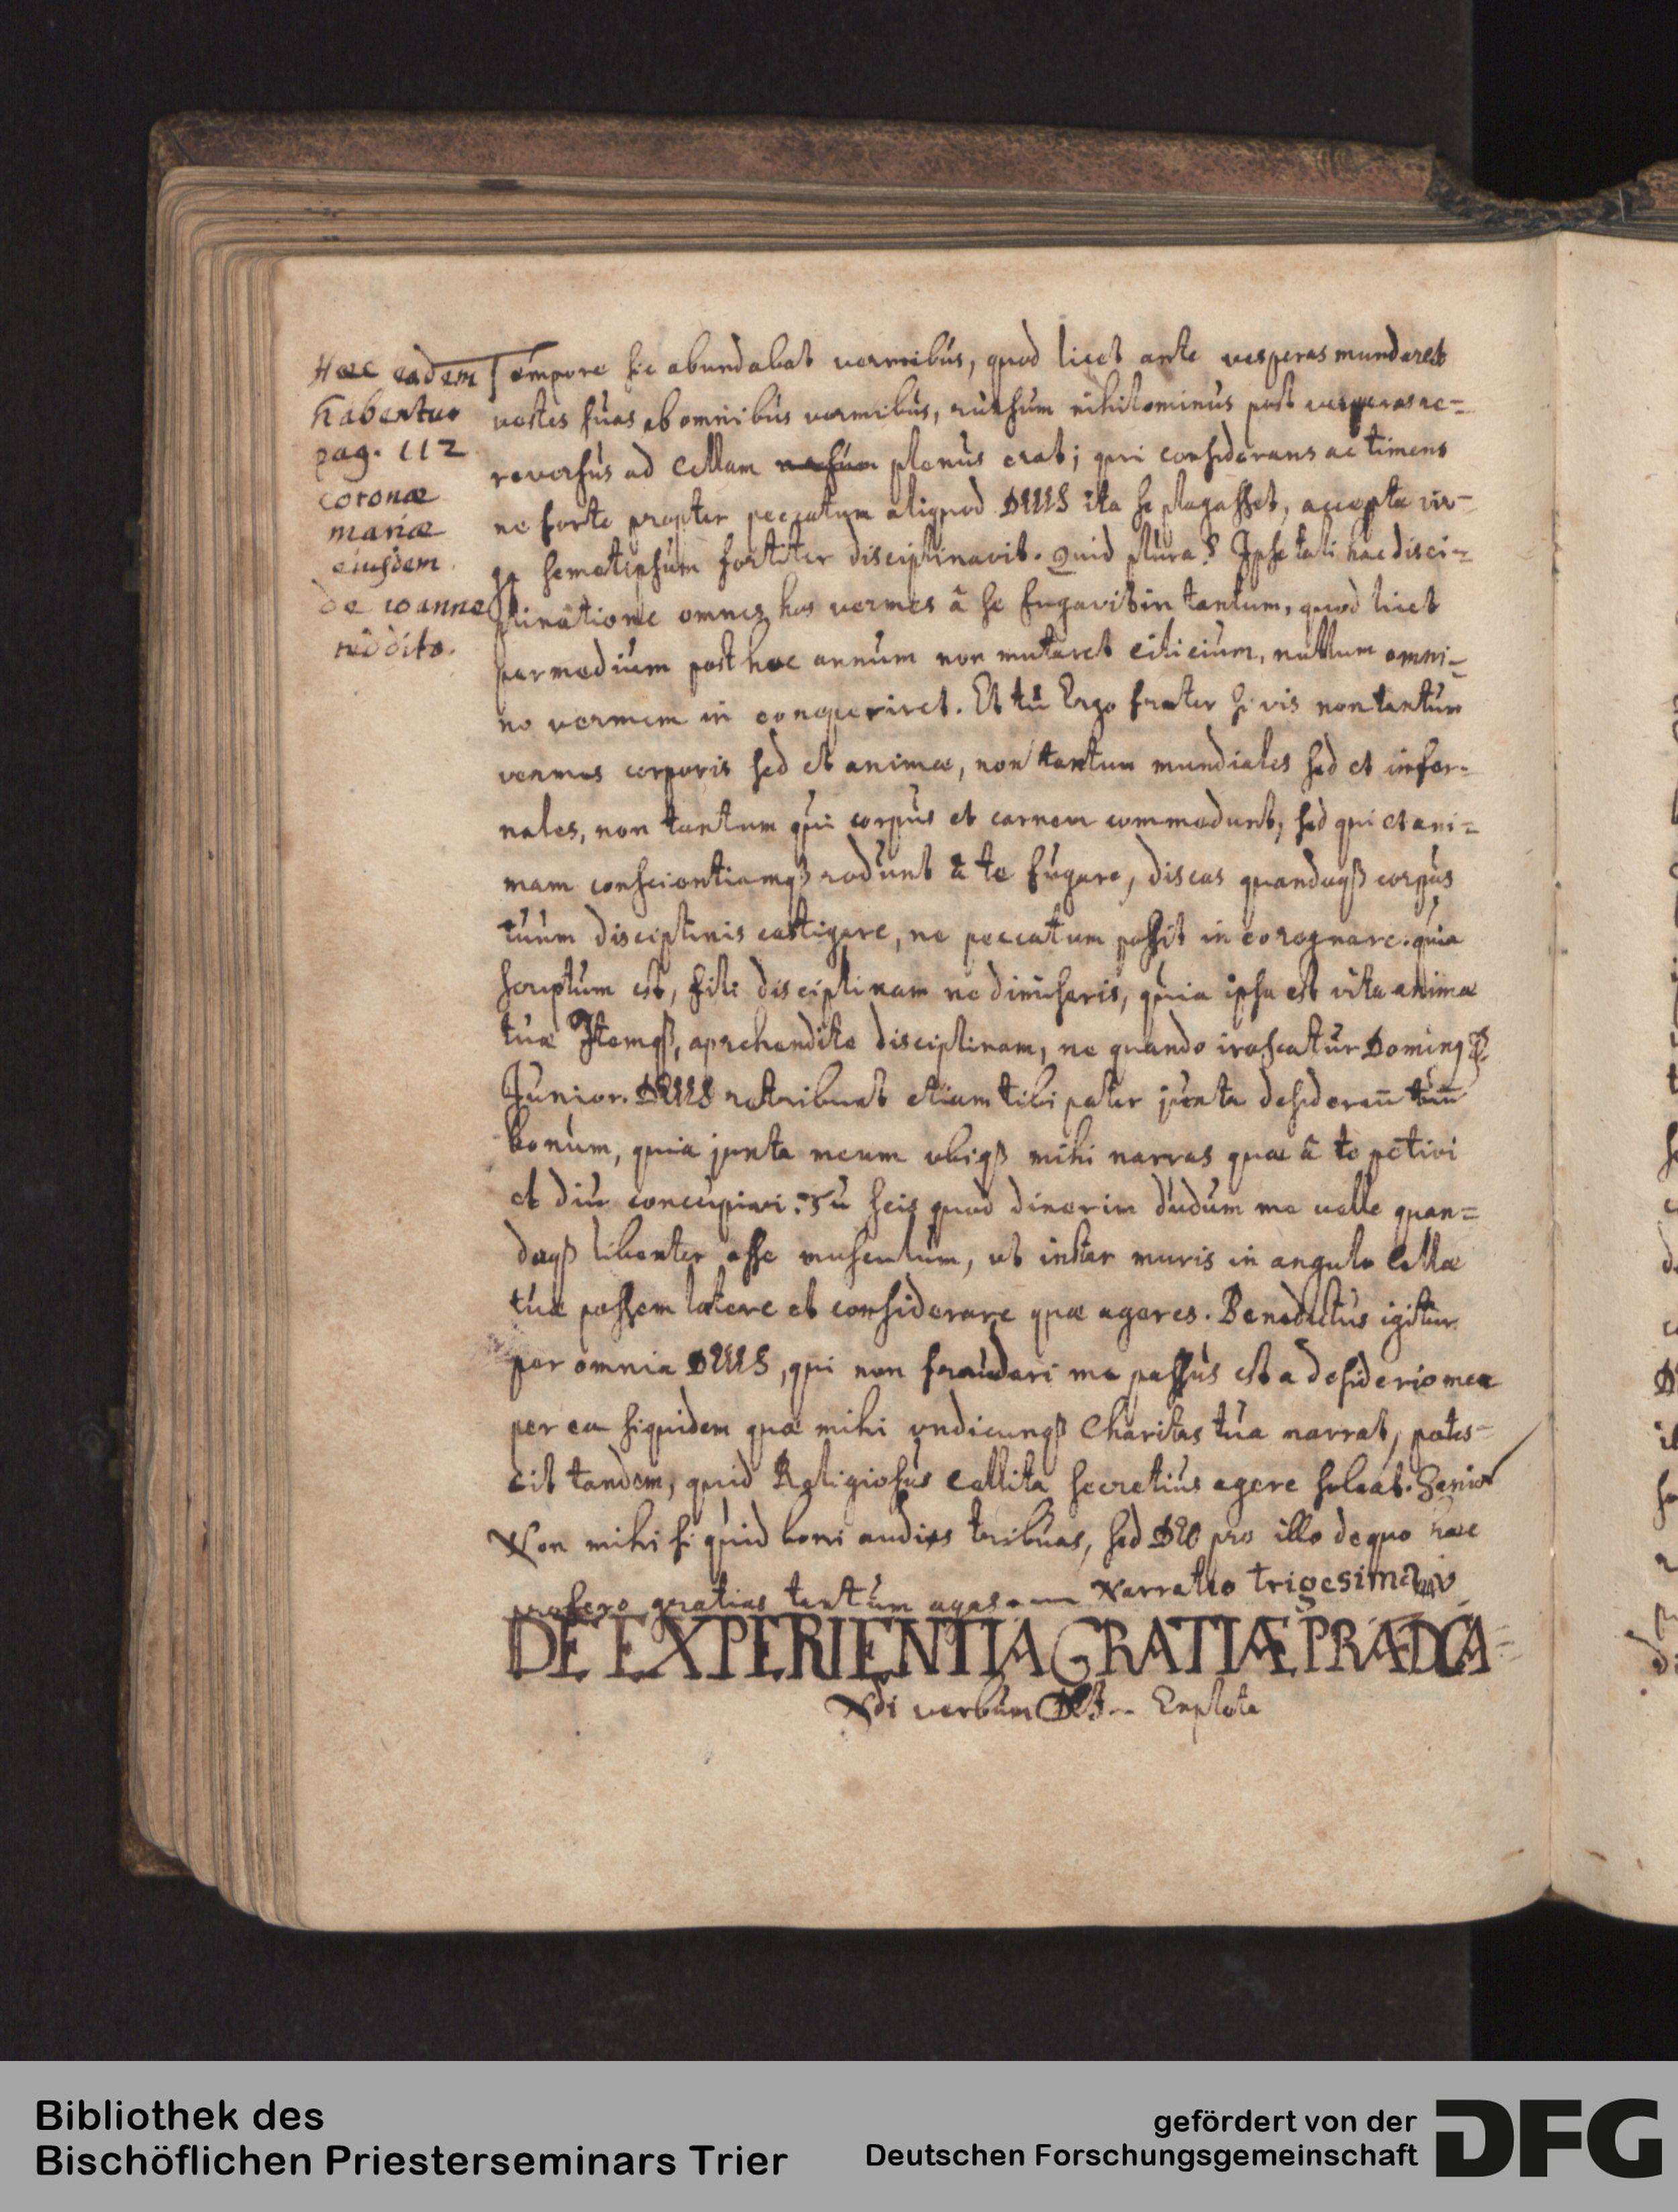 Haec eadem
habentur
pag. 112
coronae
mariae
eiusdem
de ioanne
rīddito.
Tempore sic abundabat vermibus, quod licet ante vesperas mundaret
vestes suas ab omnibus vermibus, rursum nihilominus post vesperas re=
reversus ad Cellam plenus erat; qui considerans ac timens
ne forte propter peccatum aliquod DEUS ita se plagasset, accepta vir=
ga semetipsum fortiter disciplinavit. Quid plura? Ipse tali hac disci=
plinatione omnes hos vermes â se fugavit in tantum, quod licet
per medium post hoc annum non mutaret cilicium, nullum omni=
no vermem in eo reperiret. Et tu Ergo frater si vis non tantum
vermes corporis sed et animae, non tantum mundiales sed et infer=
nales, non tantum qui corpus et carnem commedunt, sed qui et ani=
mam conscientiamqȝ rodunt â te fugare, discas quandoqȝ corpus
tuum disciplinis castigare, ne peccatum possit in eo regnare. quia
scriptum est, fili disciplinam ne dimiseris, quia ipsa est vita animae
tuae Itemqȝ, aprehendite disciplinam, ne quando irascatur Dominꝰ
Junior. DEUS retribuat etiam tibi pater juxta desideriū tuū
bonum, quia juxta meum ubiqȝ mihi narras quae â te petivi
et diu concupivi. Tu scis quod dixerim dudum me velle quan=
doqȝ libenter esse musculum, ut instar muris in angulo Cellae
tuae possem latere et considerare quae ageres. Benedictus igitur
per omnia DEUS, qui non fraudari me passus est a desiderio meo
per ea siquidem quae mihi undicunqȝ Charitas tua narrat, pates=
cit tandem, quid Religiosus Cellita secretius agere soleat. Senior
Non mihi si quid boni audies tribuas, sed DEO pro illo de quo haec
profero gratias tantum agas. Narratio trigesima
DE EXPERIENTIA GRATIÆ PRÆDICA=
verbum DEI Explete
Bibliothek des
Bischöflichen Priesterseminars Trier
gefördert von der
Deutschen Forschungsgemeinschaft
DFG